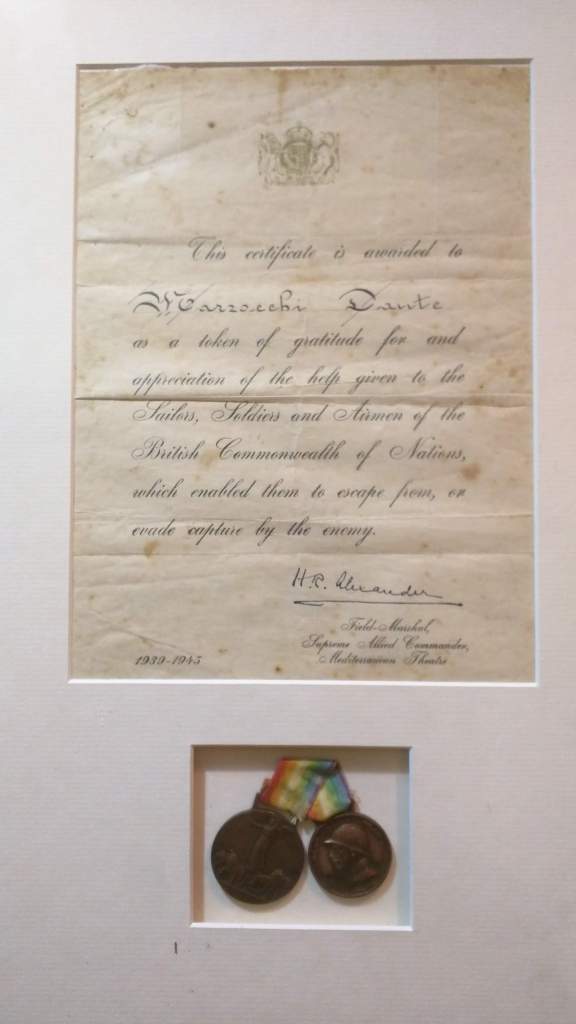 This certificate is awarded to
Marzocchi Dante
as a token of gratitude for and
appreciation of the help given to the
Sailors, Soldiers and Airmen of the
British Commonwealth of Nations,
which enabled them to escape from, or
evade capture by the enemy.
H.R. Alexander
Field-Marshal,
Supreme Allied Commander,
1939-1945 Mediterranean Theatre